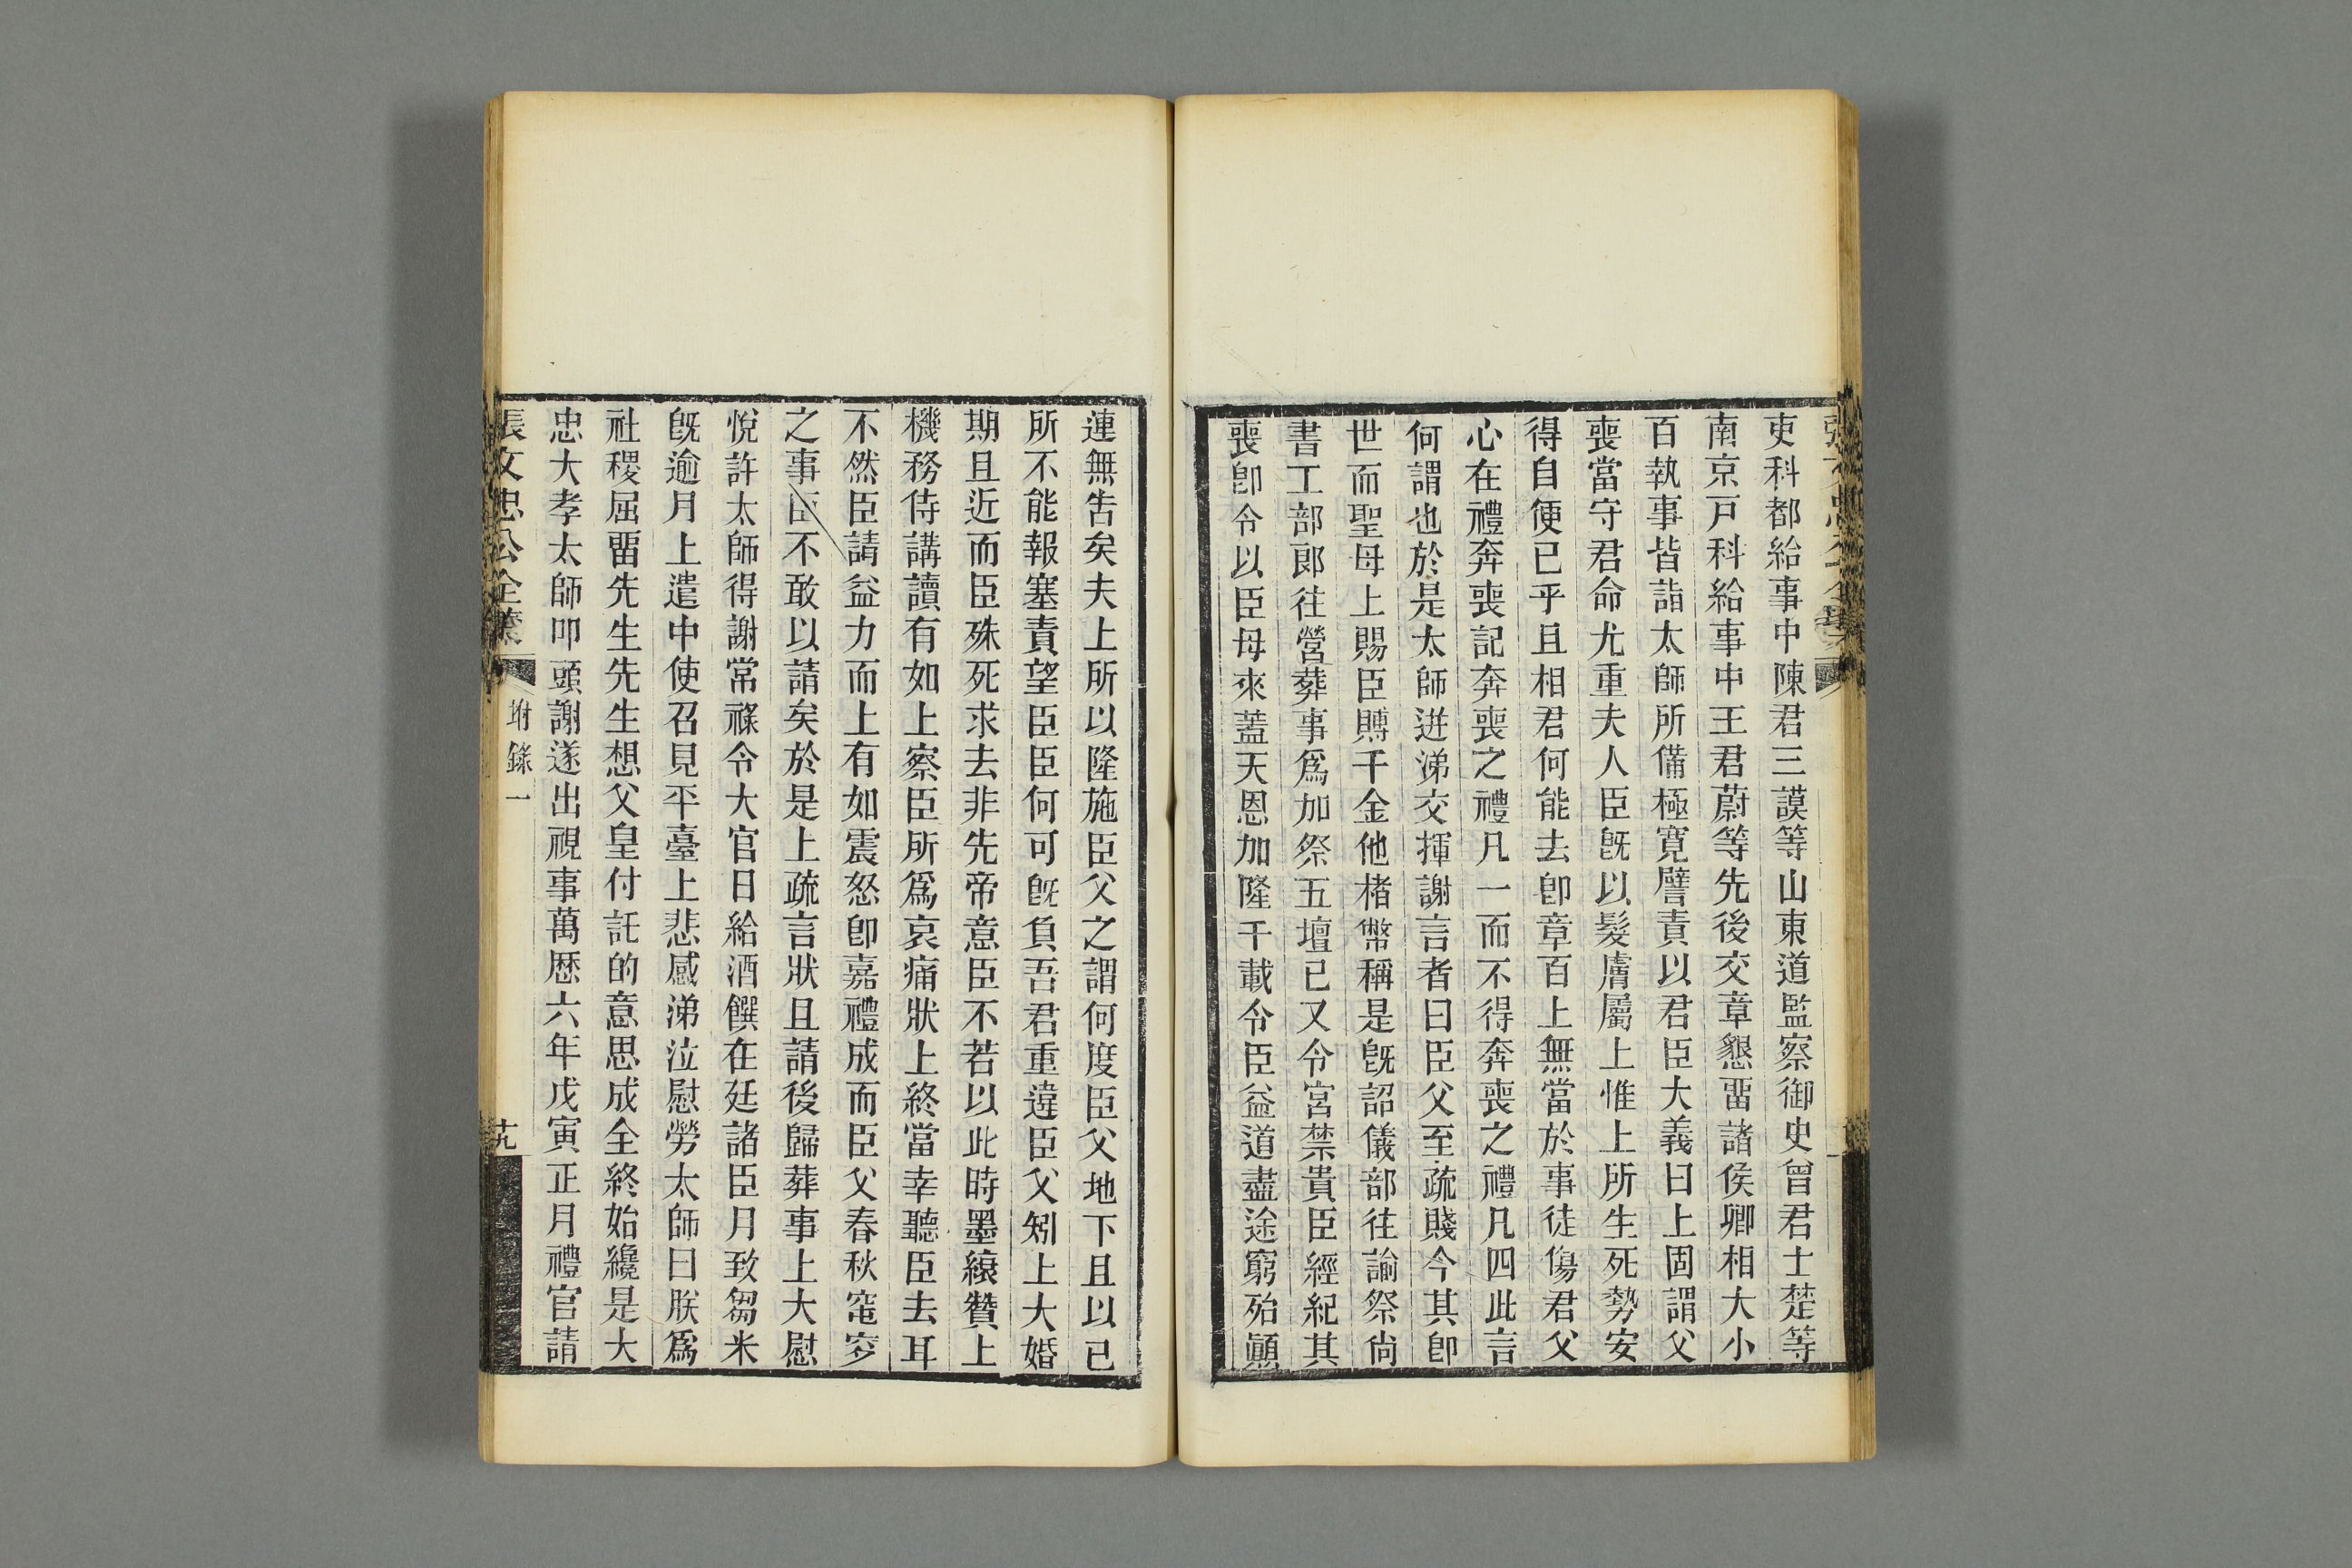 吏科都給事中陳君三謨等山東道監察御史曾君士楚等
南京戸科給事中王君蔚等先後交章懇畱諸侯卿相大小
百執事皆詣太師所備極寛譬責以君臣大義曰上固謂父
喪當守君命尤重夫人臣旣以髮膚屬上惟上所生死勢安
得自便已乎且相君何能去卽章百上無當於事徒傷君父
心在禮奔喪記奔喪之禮凡一而不得奔喪之禮凡四此言
何謂也於是太師迸涕交揮謝言者曰臣父至疏賤今其卽
世而聖母上賜臣賻千金他楮幣稱是旣詔儀部往諭祭尙
書工部郞往營葬事爲加祭五壇已又令宮禁貴臣經紀其
喪卽令以臣母來蓋天恩加隆千載令臣益道盡途窮殆顚
連無吿矣夫上所以隆施臣父之謂何度臣父地下且以已
所不能報塞責望臣臣何可旣負吾君重違臣父矧上大婚
期且近而臣殊死求去非先帝意臣不若以此時墨縗贊上
機務侍講讀有如上察臣所爲哀痛狀上終當幸聽臣去耳
不然臣請益力而上有如震怒卽嘉禮成而臣父春秋窀穸
之事臣不敢以請矣於是上疏言狀且請後歸葬事上大慰
悅許太師得謝常祿令大官日給酒饌在廷諸臣月致芻米
旣逾月上遣中使召見平臺上悲感涕泣慰勞太師曰朕爲
社稷屈畱先生先生想父皇付託的意思成全終始纔是大
忠大孝太師叩頭謝遂出視事萬歷六年戊寅正月禮官請
張文忠公全集
附錄一
十九